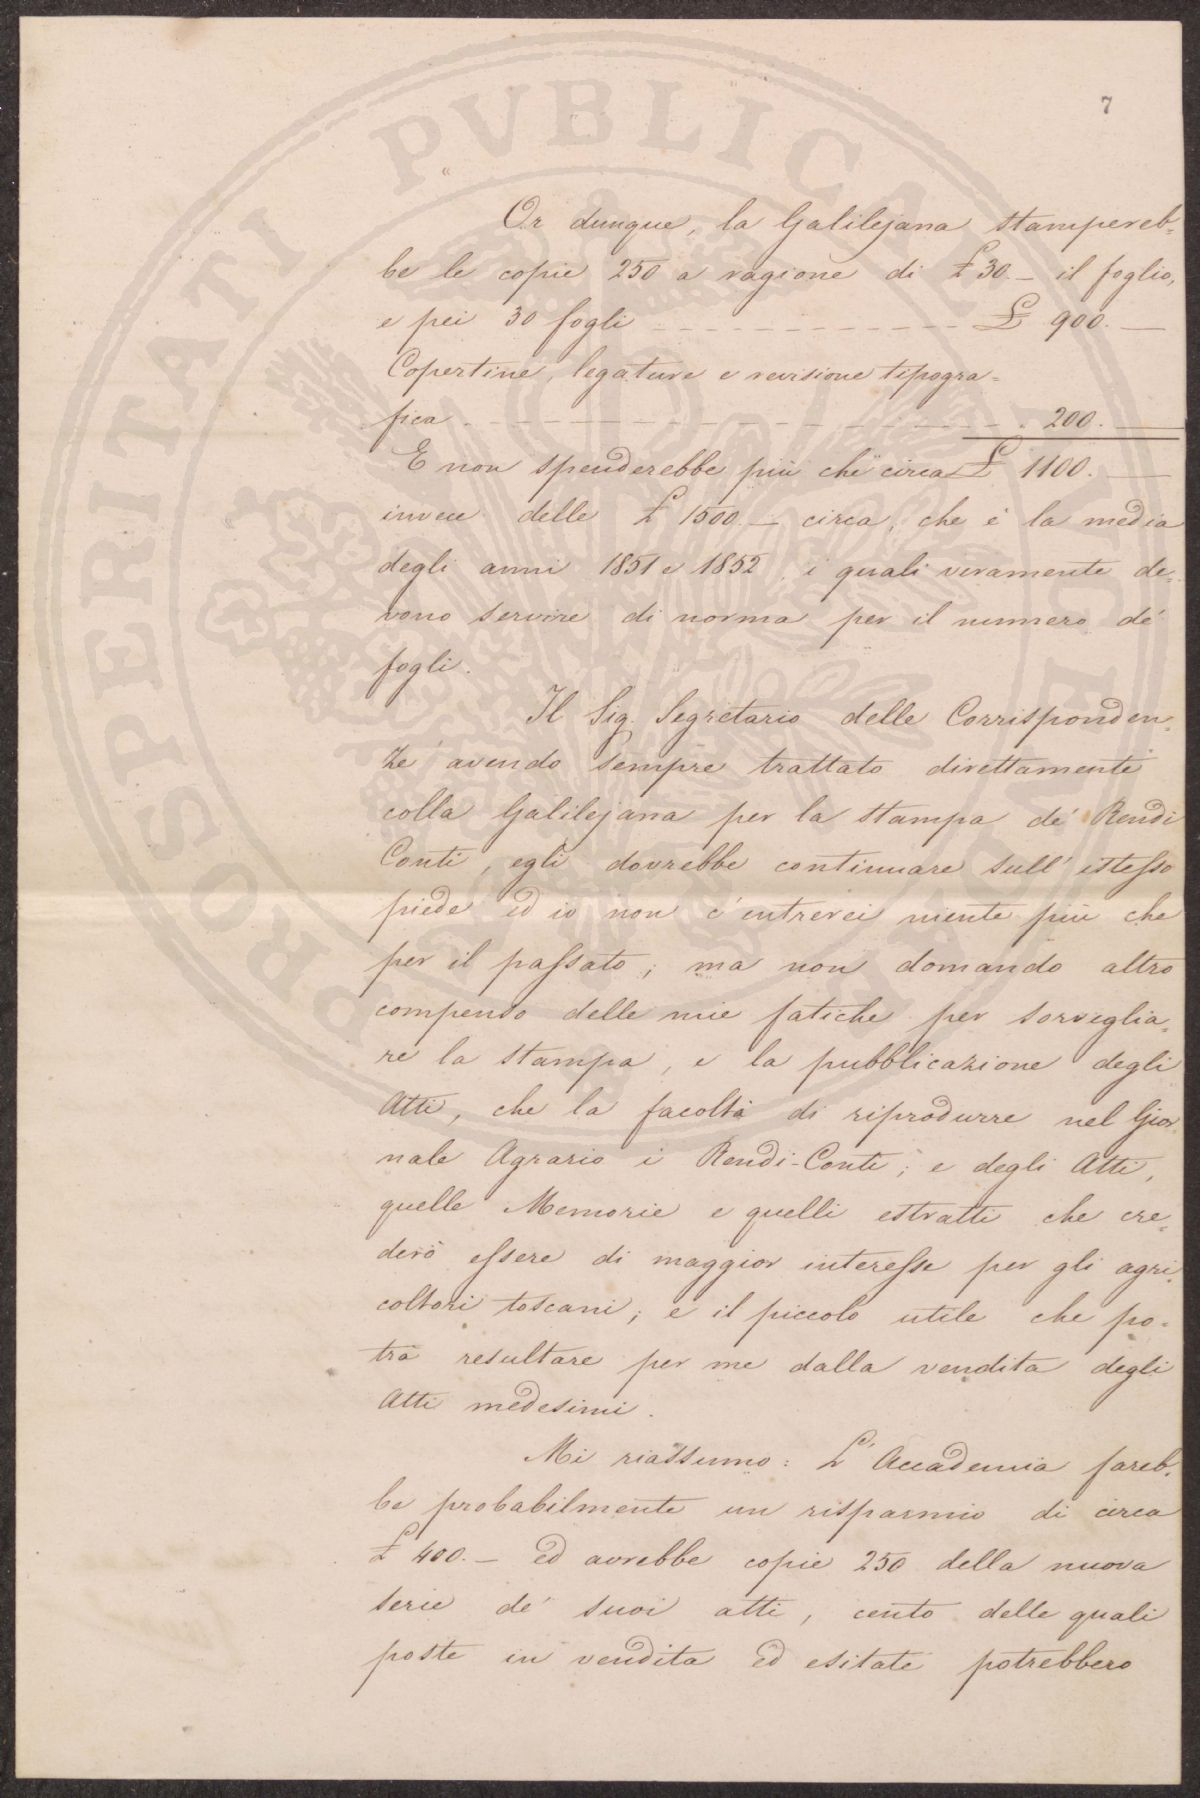 PROSPERITATI PVBLICAE AVGENDAE
7
Or dunque, la Galilejana stampereb-
be le copie 250 a ragione di £ 30.— il foglio,
e pei 30 fogli - - - - - - - - - - £ 900.—
Copertine, legature e revisione tipogra=
fica - - - - - - - - - - - - - - - 200.—
E non spenderebbe più che circa £ 1100.—
invece delle £ 1500.— circa, che è la media
degli anni 1851 e 1852, i quali veramente de-
vono servire di norma per il numero de'
fogli.
Il Sig. Segretario delle Corrisponden-
ze avendo sempre trattato direttamente
colla Galilejana per la stampa de' Rendi
Conti, egli dovrebbe continuare sull'istesso
piede ed io non c'entrerei niente più che
per il passato; ma non domando altro
compenso delle mie fatiche per sorveglia=
re la stampa, e la pubblicazione degli
Atti, che la facoltà di riprodurre nel Gior-
nale Agrario i Rendi-Conti; e degli Atti,
quelle Memorie e quelli estratti che cre=
derò essere di maggior interesse per gli agri-
coltori toscani; e il piccolo utile che po-
trà resultare per me dalla vendita degli
Atti medesimi.
Mi riassumo: L'Accademia fareb-
be probabilmente un risparmio di circa
£ 400.— ed avrebbe copie 250 della nuova
serie de' suoi atti, cento delle quali
poste in vendita ed esitate potrebbero